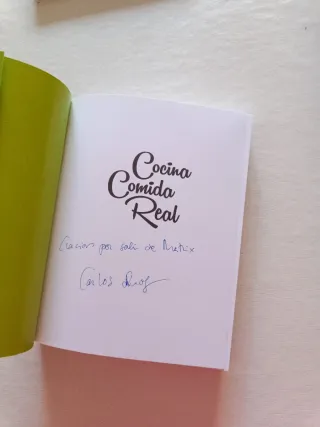 Cocina
Comida
Real
Gracias por salir de Matrix
Carlos Ríos